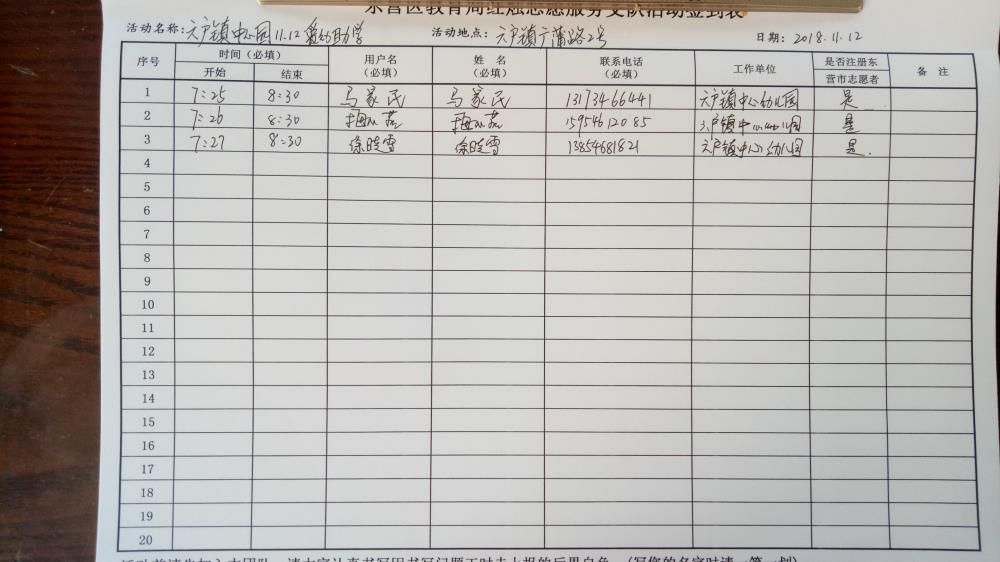 东营区教育局红烛志愿服务支队活动签到表
活动名称：六户镇中心园11.12爱幼助学 活动地点：六户镇广蒲路2号 日期：2018.11.12
序号 时间（必填） 用户名（必填） 姓 名（必填） 联系电话（必填） 工作单位 是否注册东营市志愿者 备 注
开始 结束
1 7:25 8:30 马家民 马家民 13173466441 六户镇中心幼儿园 是
2 7:26 8:30 15954612085 六户镇中心幼儿园 是
3 7:27 8:30 徐晓雪 徐晓雪 13854681821 六户镇中心幼儿园 是.
4
5
6
7
8
9
10
11
12
13
14
15
16
17
18
19
20